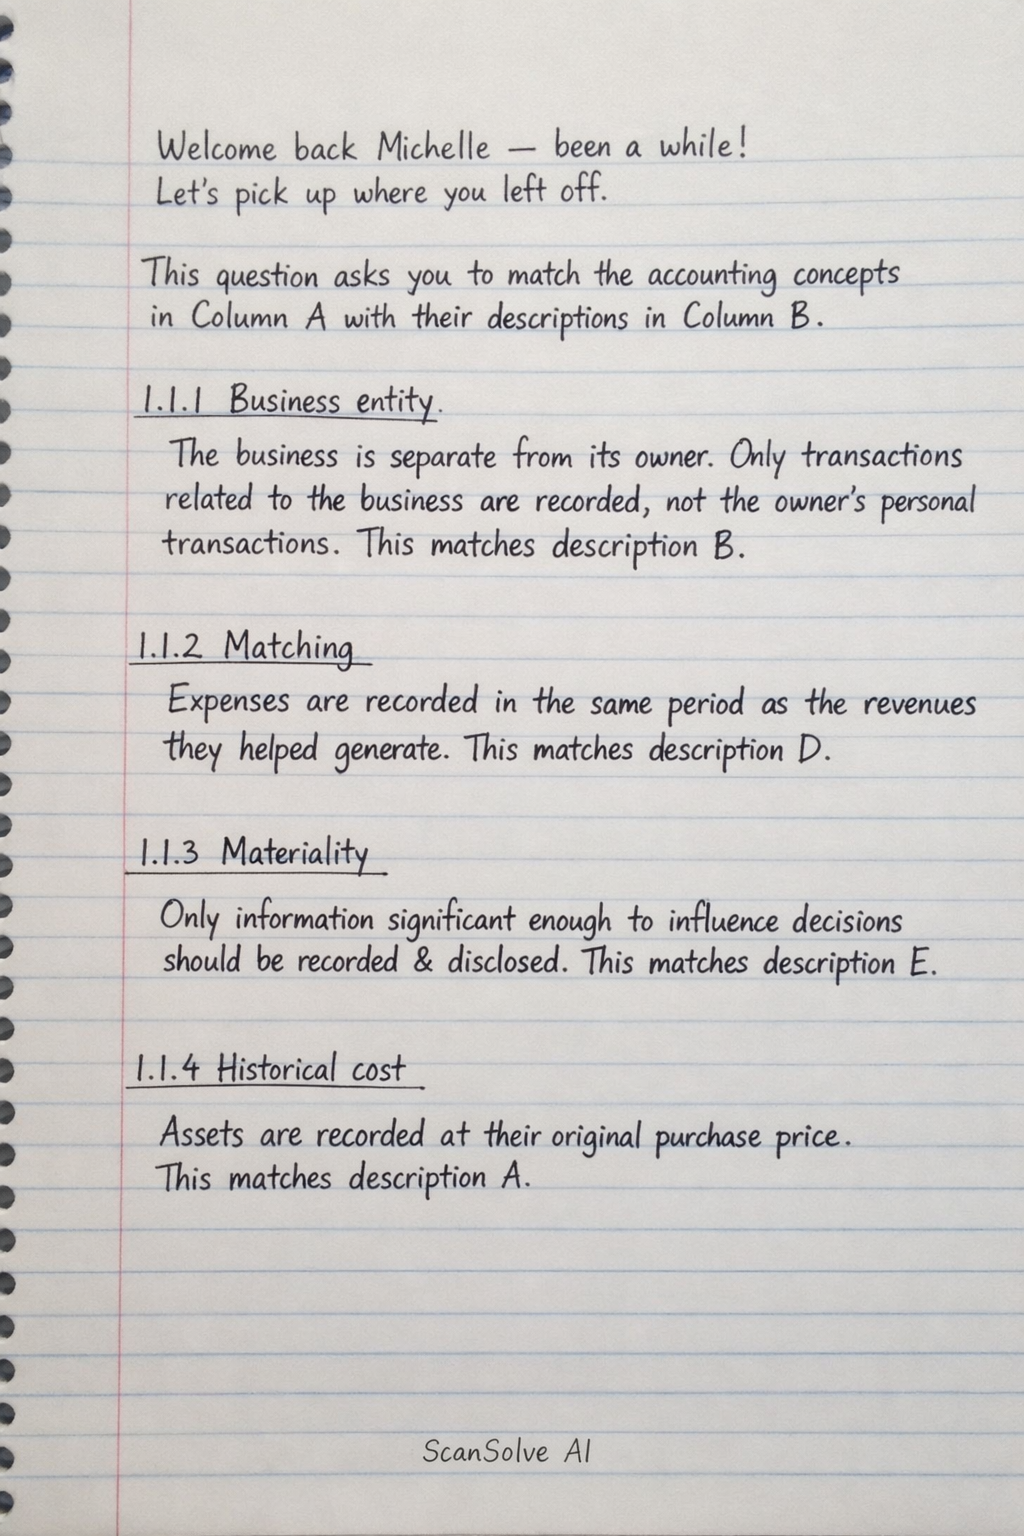 Welcome back Michelle — been a while!
Let's pick up where you left off.
This question asks you to match the accounting concepts
in Column A with their descriptions in Column B.
1.1.1 Business entity.
The business is separate from its owner. Only transactions
related to the business are recorded, not the owner's personal
transactions. This matches description B.
1.1.2 Matching
Expenses are recorded in the same period as the revenues
they helped generate. This matches description D.
1.1.3 Materiality
Only information significant enough to influence decisions
should be recorded & disclosed. This matches description E.
1.1.4 Historical cost
Assets are recorded at their original purchase price.
This matches description A.
ScanSolve AI